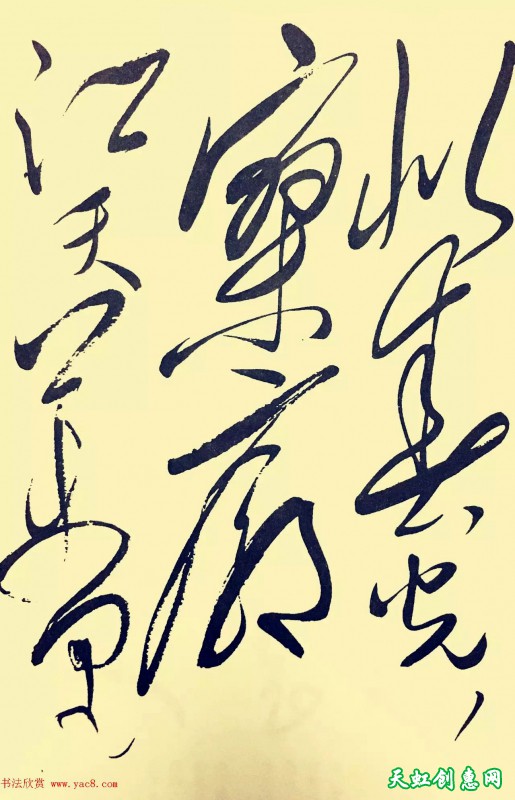 似春光,
寥廓
江天万里霜,
书法欣赏 www.yac8.com
天虹创惠网